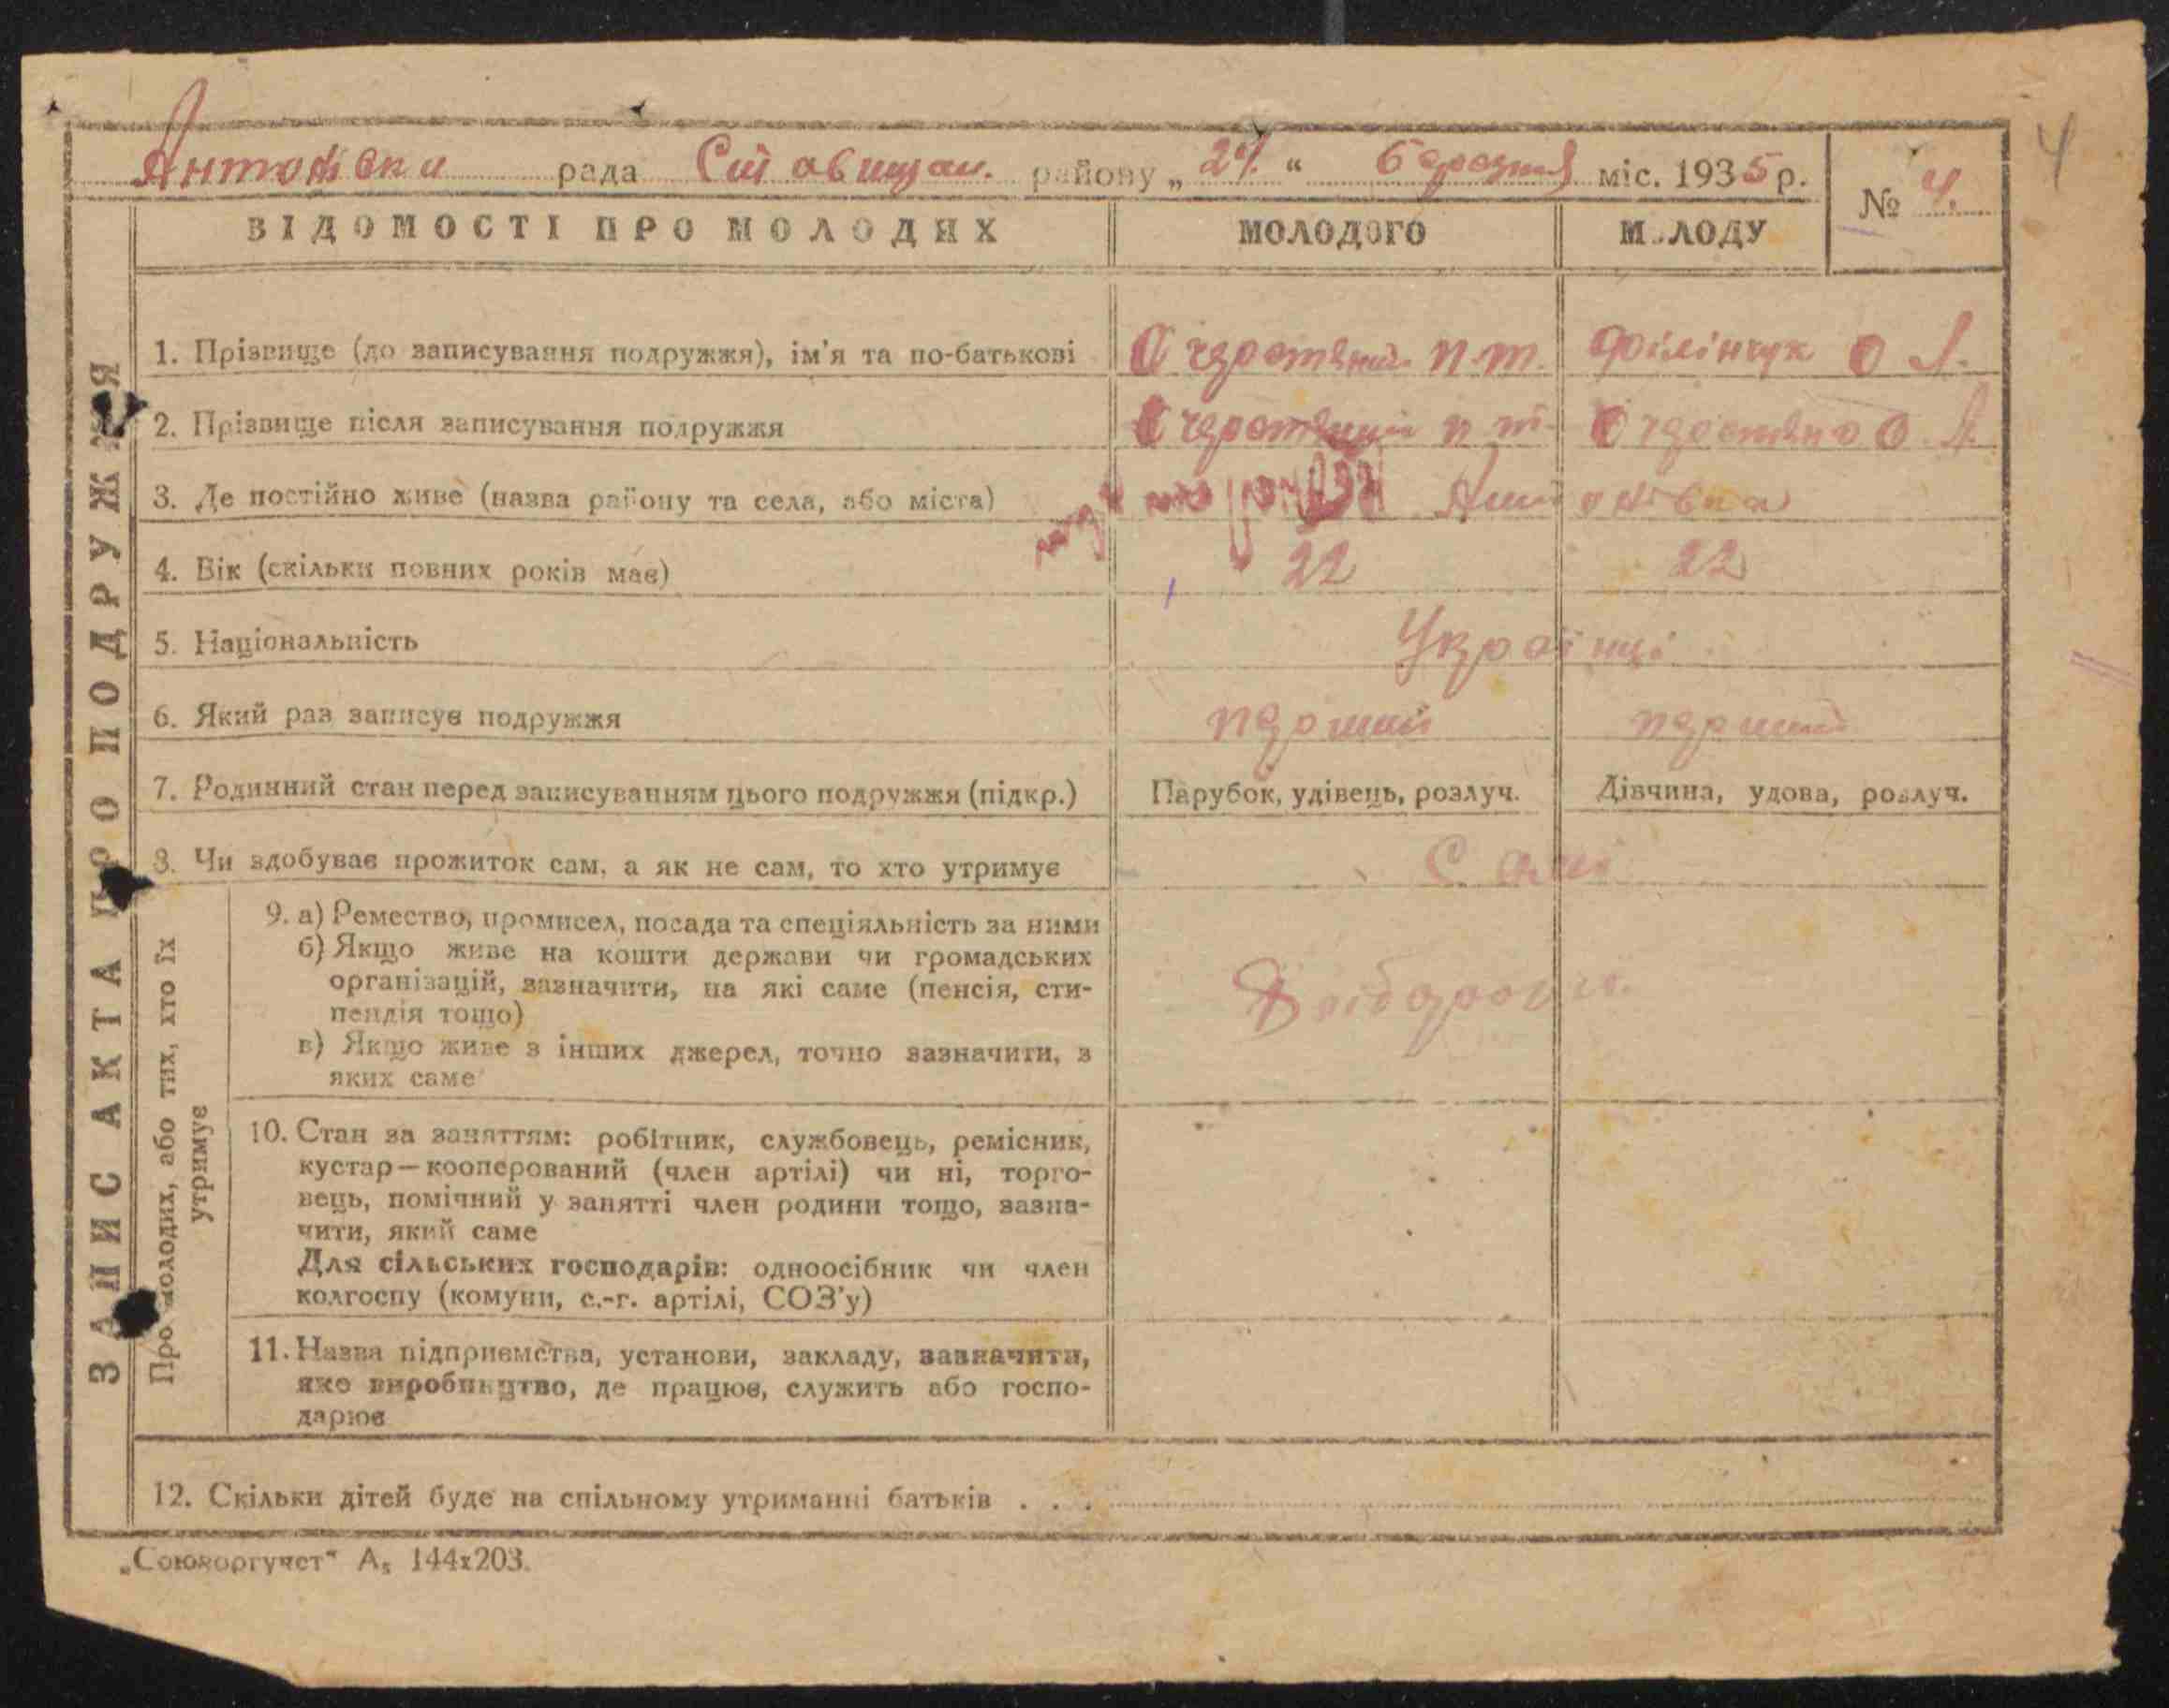 Антонівка рада Ставищан. району „ 27. “ березня міс. 1935 р.
№ 4.
4
ВІДОМОСТІ ПРО МОЛОДИХ
МОЛОДОГО
М.ЛОДУ
ЗАПИС АКТА ПРО ПОДРУЖЖЯ
1. Прізвище (до записування подружжя), ім'я та по-батькові
Очеретяний П.Т.
Філінчук О Л.
2. Прізвище після записування подружжя
Очеретяний П Т.
Очеретяна О. Л.
3. Де постійно живе (назва району та села, або міста)
Антонівка
4. Вік (скільки повних років має)
22
22
5. Національність
Українці
6. Який раз записує подружжя
перший
перший
7. Родинний стан перед записуванням цього подружжя (підкр.)
Парубок, удівець, розлуч.
Дівчина, удова, розлуч.
8. Чи здобуває прожиток сам, а як не сам, то хто утримує
Самі
Про молодих, або тих, хто їх
утримує
9. а) Ремество, промисел, посада та спеціяльність за ними
б) Якщо живе на кошти держави чи громадських
організацій, зазначити, на які саме (пенсія, сти-
пендія тощо)
в) Якщо живе з інших джерел, точно зазначити, з
яких саме
10. Стан за заняттям: робітник, службовець, ремісник,
кустар—кооперований (член артілі) чи ні, торго-
вець, помічний у занятті член родини тощо, зазна-
чити, який саме
Для сільських господарів: одноосібник чи член
колгоспу (комуни, с.-г. артілі, СОЗ'у)
11. Назва підприємства, установи, закладу, зазначити,
яке виробництво, де працює, служить або госпо-
дарює
12. Скільки дітей буде на спільному утриманні батьків . . .
„Союзоргучет" А₅ 144x203.